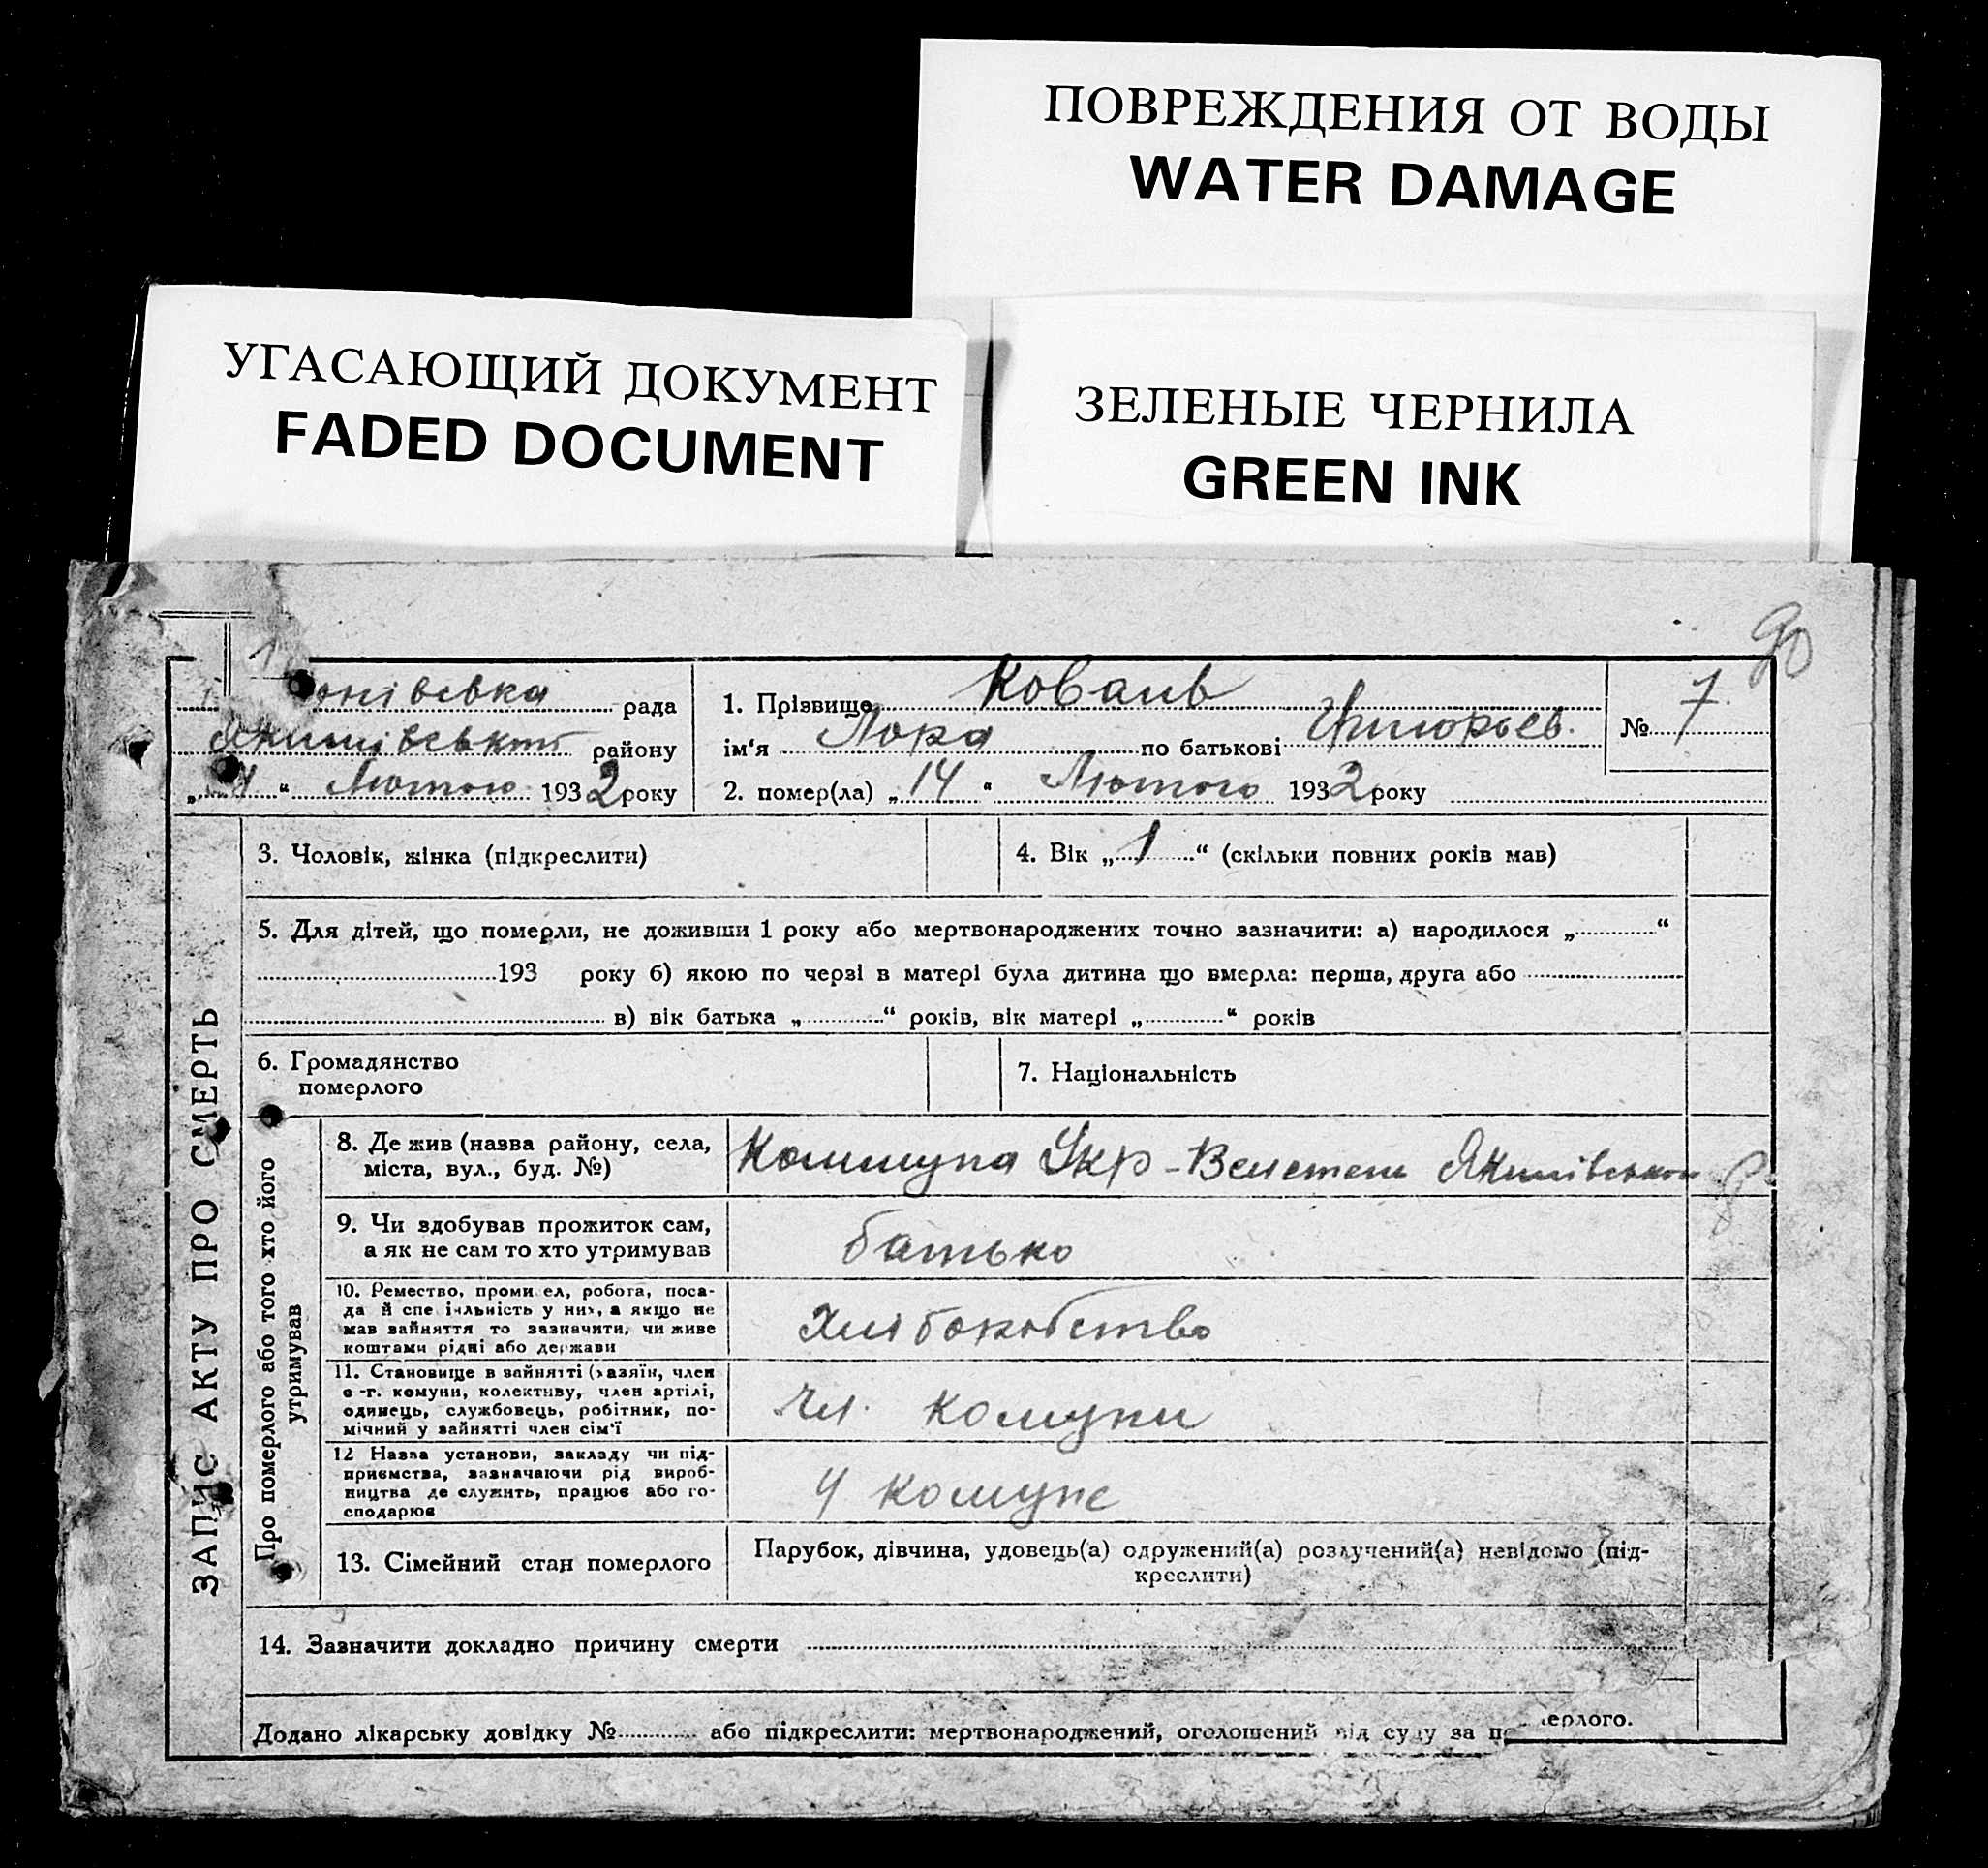 ПОВРЕЖДЕНИЯ ОТ ВОДЫ
WATER DAMAGE
УГАСАЮЩИЙ ДОКУМЕНТ
FADED DOCUMENT
ЗЕЛЕНЫЕ ЧЕРНИЛА
GREEN INK
90
рада
Якимівського району
„ “ Лютого 1932 року
1. Прізвище Коваль
ім‘я Лора по батькові Григорьев.
№ 7.
2. помер(ла) „14“ Лютого 1932 року
ЗАПИС АКТУ ПРО СМЕРТЬ
3. Чоловік, жінка (підкреслити)
4. Вік „1“ (скільки повних років мав)
5. Для дітей, що померли, не доживши 1 року або мертвонароджених точно зазначити: а) народилося „ “
193 року б) якою по черзі в матері була дитина що вмерла: перша, друга або
в) вік батька „ “ років, вік матері „ “ років
6. Громадянство
померлого
7. Національність
Про померлого або того хто його
утримував
8. Де жив (назва району, села,
міста, вул., буд. №)
Коммуна Укр- Якимівського р.
9. Чи здобував прожиток сам,
а як не сам то хто утримував
батько
10. Ремество, проми ел, робота, поса-
да й спе іальність у них, а якщо не
мав зайняття то зазначити, чи живе
коштами рідні або держави
Хліборобство
11. Становище в зайнятті (хазяїн, член
с-г. комуни, колективу, член артілі,
одинець, службовець, робітник, по-
мічний у зайнятті член сім‘ї
Чл. комуни
12 Назва установи, закладу чи під-
приємства, зазначаючи рід вироб-
ництва де служить, працює або го-
сподарює
У комуне
13. Сімейний стан померлого
Парубок, дівчина, удовець(а) одружений(а) розлучений(а) невідомо (під-
креслити)
14. Зазначити докладно причину смерти
Додано лікарську довідку № або підкреслити: мертвонароджений, оголошений від суду за п ерлого.